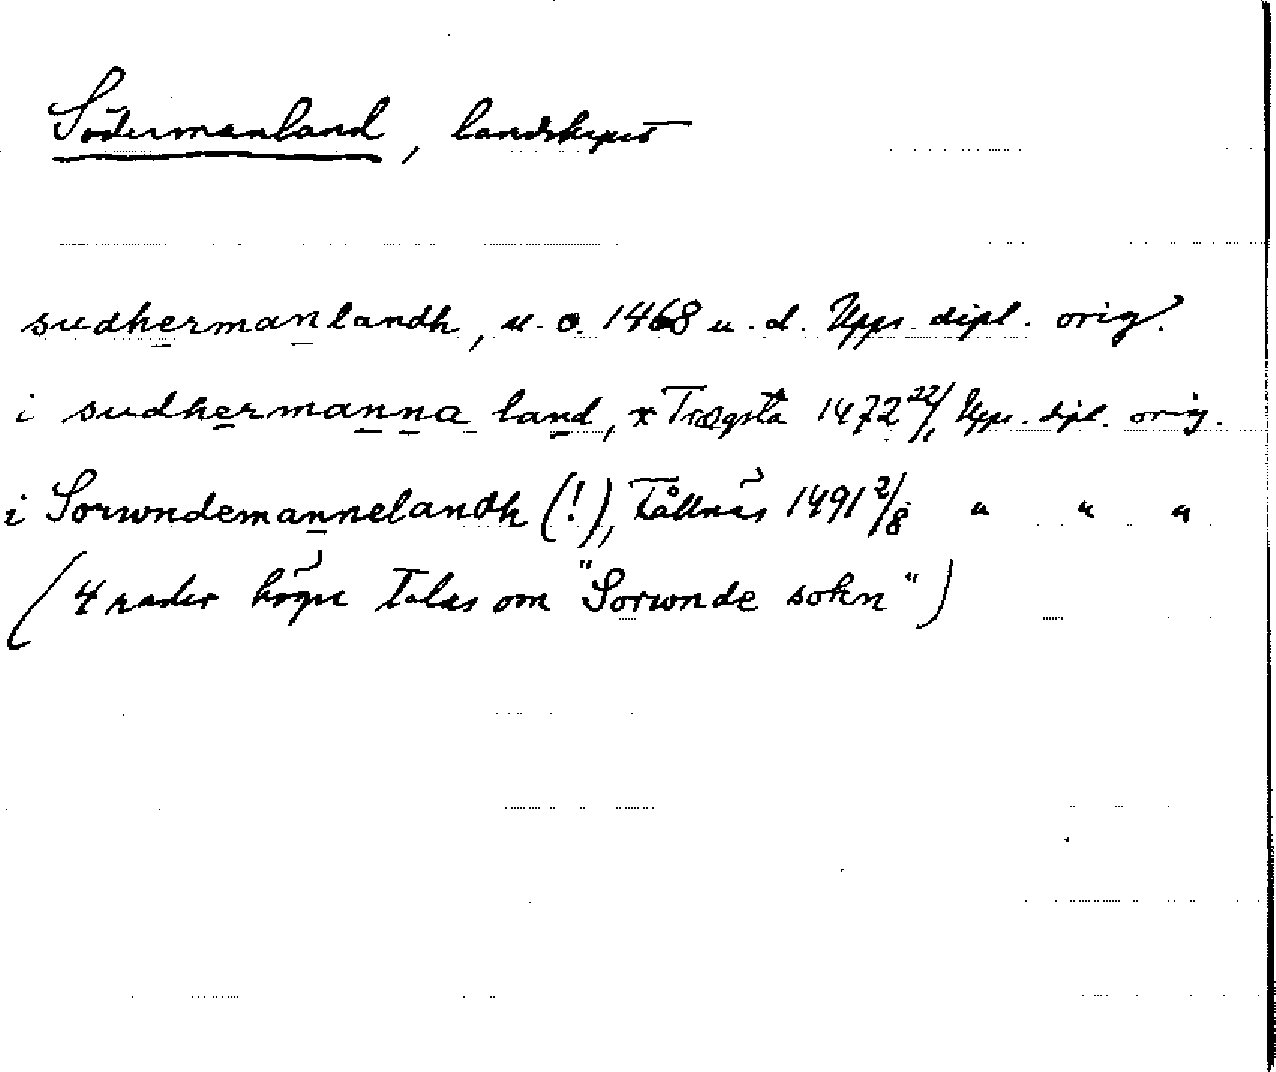 Södermanland, landskapet
sudhermanlandh, u. o. 1468 u. d. Upps. dipl. orig.
i sudhermanna land, x Trægsta 1472 22/1 Upps. dipl. orig.
i Sorwndemannelandh (!), Tållnäs 1491 2/8 " " "
(4 rader högre talas om "Sorwnde sokn")